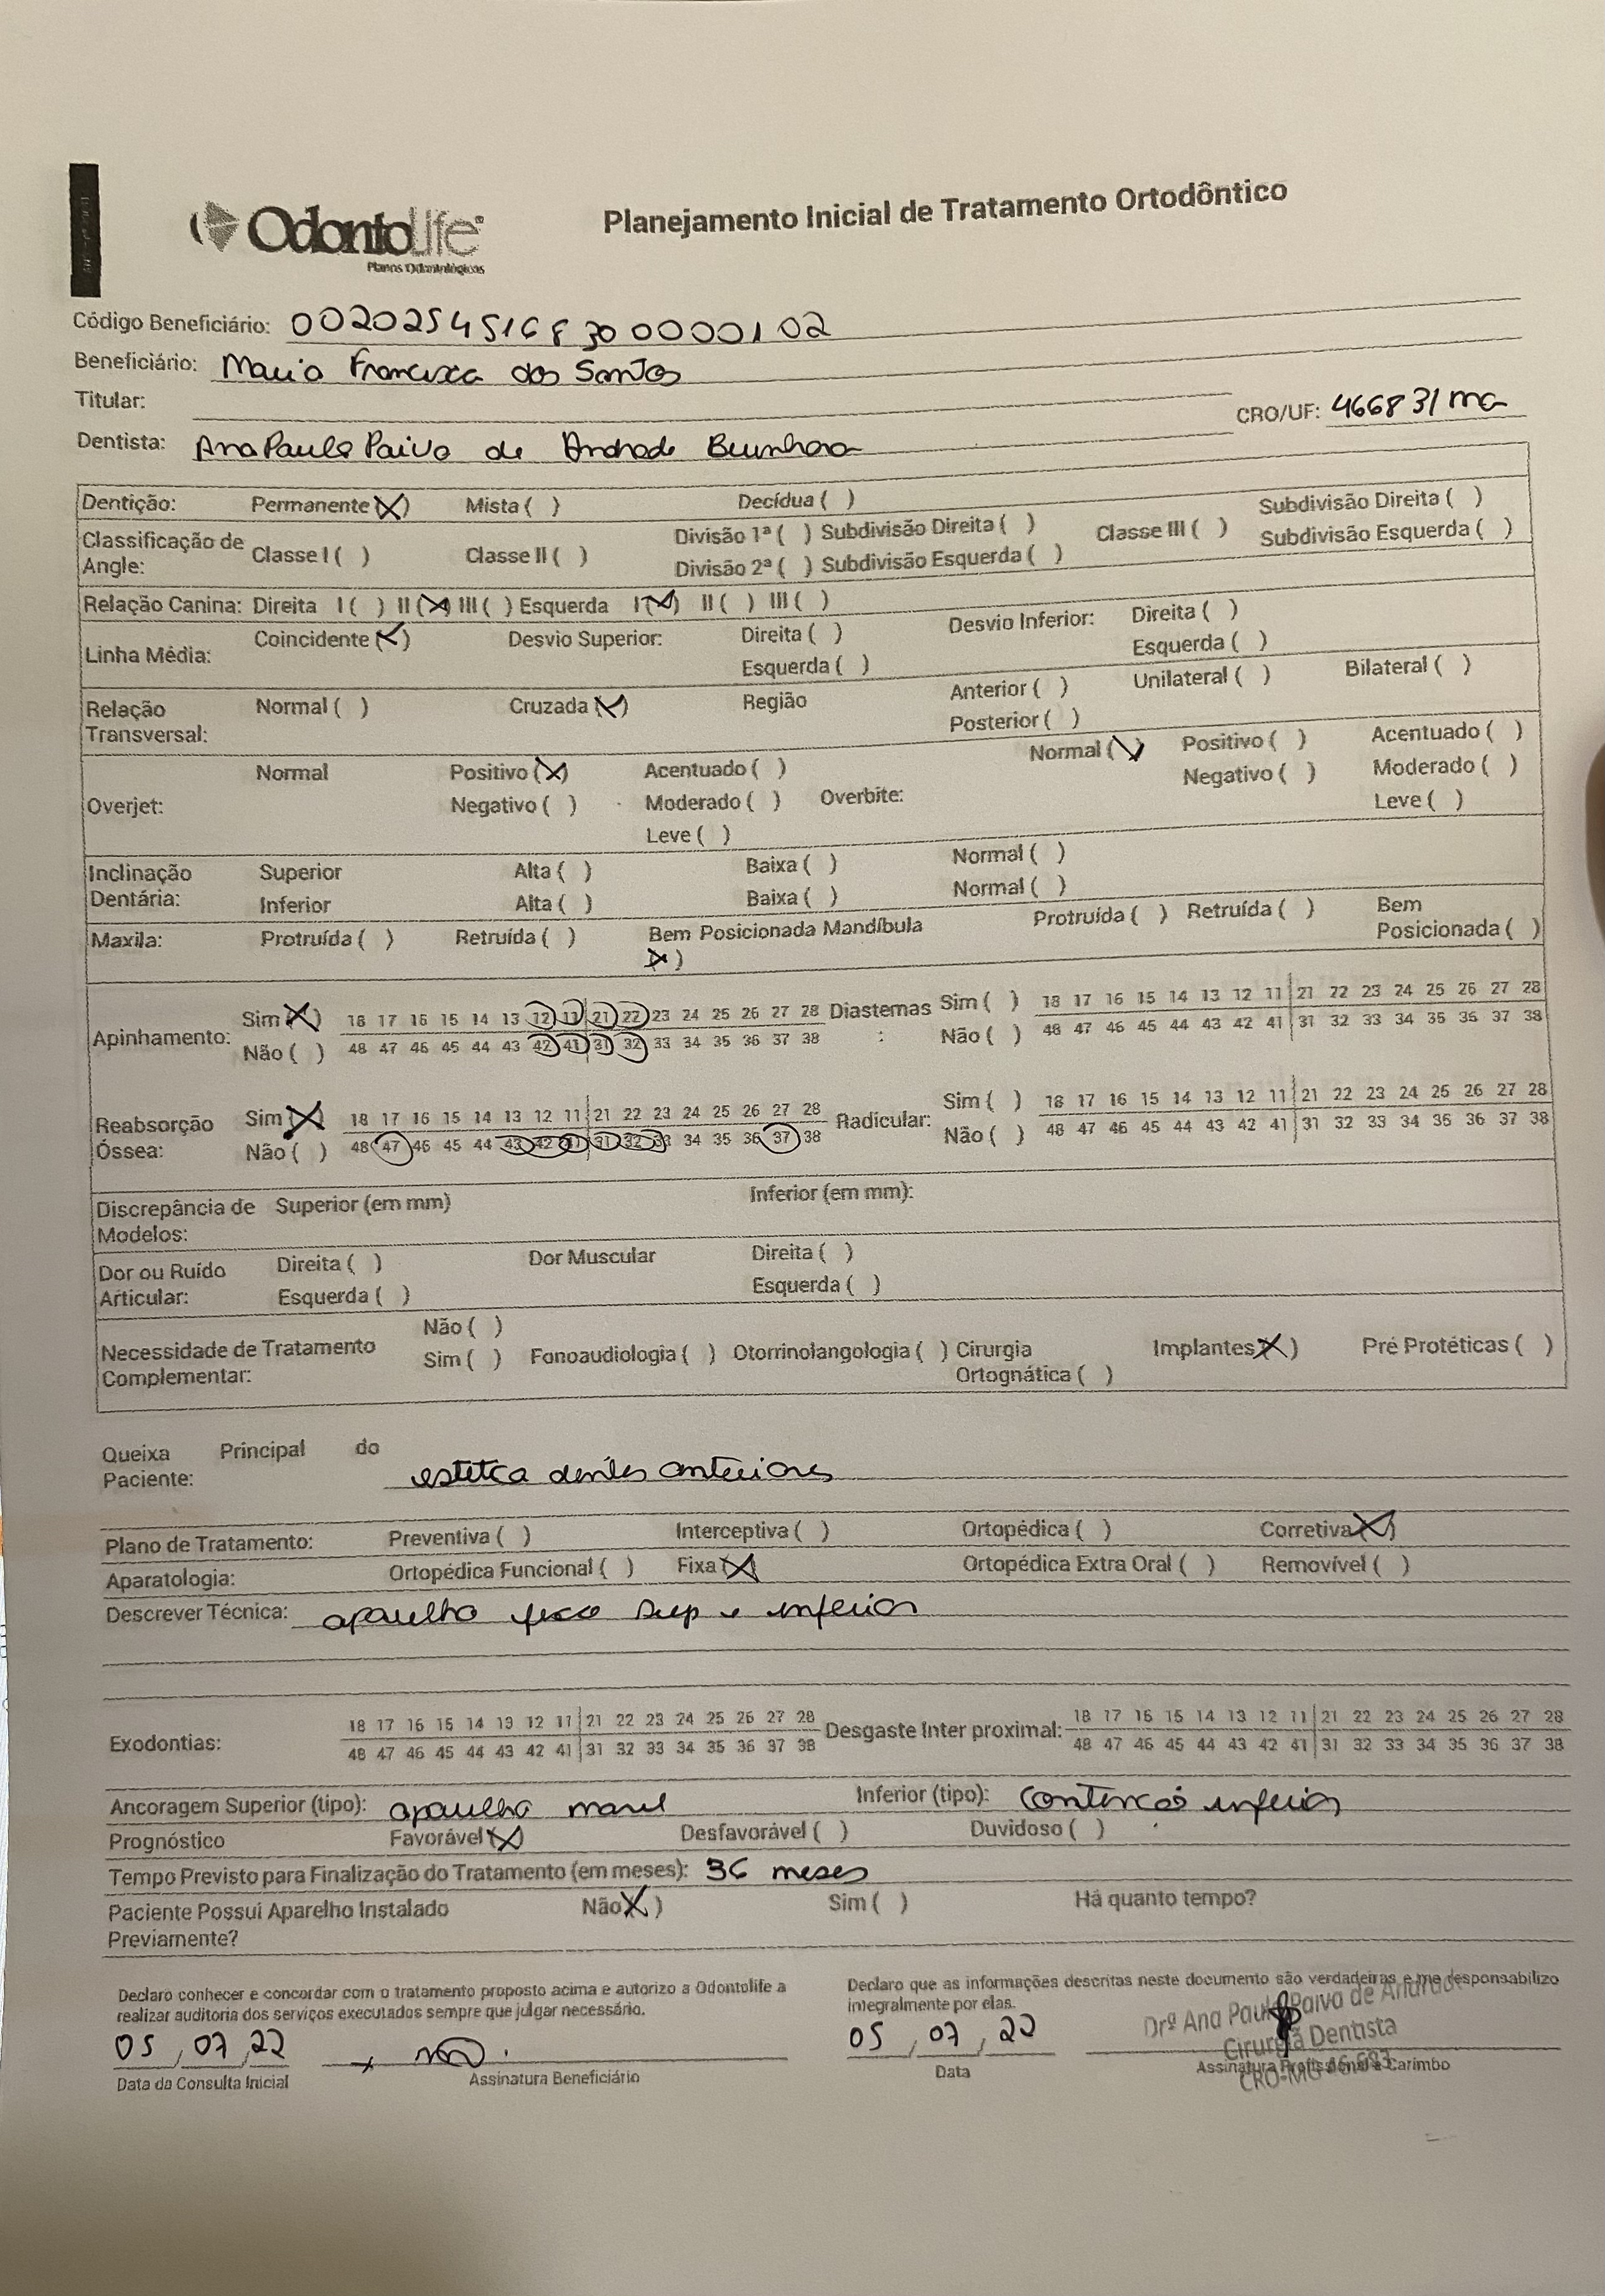 OdontoLife®
Planos Odontológicos
Planejamento Inicial de Tratamento Ortodôntico
Código Beneficiário: 00202545168300000102
Beneficiário: Maria Francisca dos Santos
Titular:
CRO/UF: 46683/MG
Dentista: Ana Paula Paiva de Andrade
Dentição: Permanente (X) Mista ( ) Decídua ( )
Classificação de Angle: Classe I ( ) Classe II ( ) Divisão 1ª ( ) Subdivisão Direita ( ) Classe III ( ) Subdivisão Direita ( )
Divisão 2ª ( ) Subdivisão Esquerda ( ) Subdivisão Esquerda ( )
Relação Canina: Direita I ( ) II (X) III ( ) Esquerda I (X) II ( ) III ( )
Linha Média: Coincidente (X) Desvio Superior: Direita ( ) Desvio Inferior: Direita ( )
Esquerda ( ) Esquerda ( )
Relação Transversal: Normal ( ) Cruzada (X) Região Anterior ( ) Unilateral ( ) Bilateral ( )
Posterior ( )
Overjet: Normal Positivo (X) Acentuado ( ) Overbite: Normal (X) Positivo ( ) Acentuado ( )
Negativo ( ) Moderado ( ) Negativo ( ) Moderado ( )
Leve ( ) Leve ( )
Inclinação Dentária: Superior Alta ( ) Baixa ( ) Normal ( )
Inferior Alta ( ) Baixa ( ) Normal ( )
Maxila: Protruída ( ) Retruída ( ) Bem Posicionada (X) Mandíbula Protruída ( ) Retruída ( ) Bem Posicionada ( )
Apinhamento: Sim (X) 18 17 16 15 14 13 12 11 21 22 23 24 25 26 27 28 Diastemas: Sim ( ) 18 17 16 15 14 13 12 11 21 22 23 24 25 26 27 28
Não ( ) 48 47 46 45 44 43 42 41 31 32 33 34 35 36 37 38 Não ( ) 48 47 46 45 44 43 42 41 31 32 33 34 35 36 37 38
Reabsorção Óssea: Sim (X) 18 17 16 15 14 13 12 11 21 22 23 24 25 26 27 28 Radicular: Sim ( ) 18 17 16 15 14 13 12 11 21 22 23 24 25 26 27 28
Não ( ) 48 47 46 45 44 43 42 41 31 32 33 34 35 36 37 38 Não ( ) 48 47 46 45 44 43 42 41 31 32 33 34 35 36 37 38
Discrepância de Modelos: Superior (em mm) Inferior (em mm):
Dor ou Ruído Articular: Direita ( ) Dor Muscular Direita ( )
Esquerda ( ) Esquerda ( )
Necessidade de Tratamento Complementar: Não ( )
Sim ( ) Fonoaudiologia ( ) Otorrinolangologia ( ) Cirurgia Ortognática ( ) Implantes (X) Pré Protéticas ( )
Queixa Principal do Paciente: estetica dentes anteriores
Plano de Tratamento: Preventiva ( ) Interceptiva ( ) Ortopédica ( ) Corretiva (X)
Aparatologia: Ortopédica Funcional ( ) Fixa (X) Ortopédica Extra Oral ( ) Removível ( )
Descrever Técnica: aparelho fixo sup e inferior
Exodontias: 18 17 16 15 14 13 12 11 21 22 23 24 25 26 27 28 Desgaste Inter proximal: 18 17 16 15 14 13 12 11 21 22 23 24 25 26 27 28
48 47 46 45 44 43 42 41 31 32 33 34 35 36 37 38 48 47 46 45 44 43 42 41 31 32 33 34 35 36 37 38
Ancoragem Superior (tipo): aparelho movel Inferior (tipo): contenção inferior
Prognóstico Favorável (X) Desfavorável ( ) Duvidoso ( )
Tempo Previsto para Finalização do Tratamento (em meses): 36 meses
Paciente Possui Aparelho Instalado Previamente? Não (X) Sim ( ) Há quanto tempo?
Declaro conhecer e concordar com o tratamento proposto acima e autorizo a Odontolife a
realizar auditoria dos serviços executados sempre que julgar necessário.
Declaro que as informações descritas neste documento são verdadeiras e me responsabilizo
integralmente por elas.
05 / 07 / 22
Data da Consulta Inicial
Assinatura Beneficiário
05 / 07 / 22
Data
Drª Ana Paula Paiva de Andrade
Cirurgiã Dentista
CRO-MG 46.683
Assinatura Profissional e Carimbo